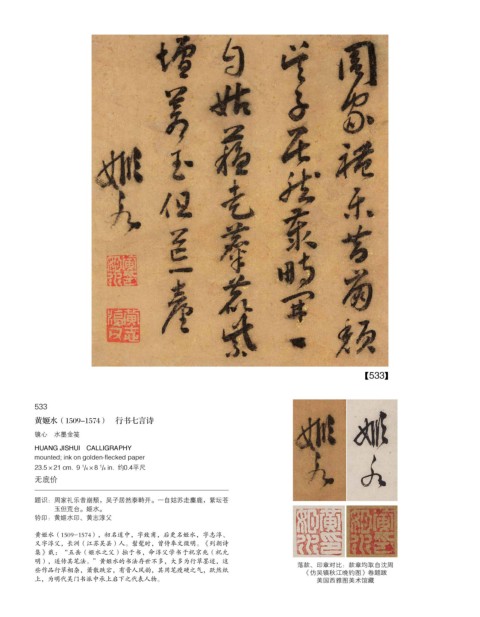 周家礼乐昔崩颓
吴子居然
泰畤开一
自姑苏走麋鹿紫
坛苍玉但荒台
姬水
【533】
533
黄姬水（1509–1574） 行书七言诗
镜心 水墨金笺
HUANG JISHUI CALLIGRAPHY
mounted; ink on golden-flecked paper
23.5×21 cm. 9 1/4×8 1/4 in. 约0.4平尺
无底价
题识：周家礼乐昔崩颓，吴子居然泰畤开。一自姑苏走麋鹿，紫坛苍
玉但荒台。姬水。
钤印：黄姬水印、黄志淳父
黄姬水（1509–1574），初名道中，字致甫，后更名姬水，字志淳，
又字淳父，长洲（江苏吴县）人。髫髦时，曾侍奉文徵明。《列朝诗
集》载：“五岳（姬水之父）抽于书，命淳父学书于祝京兆（祝允
明），遂传其笔法。”黄姬水的书法存世不多，大多为行草墨迹，这
些作品行草相杂，萧散跌宕，有晋人风韵，其用笔瘦硬之气，跃然纸
上，为明代吴门书派中承上启下之代表人物。
姬水
姬水
落款、印章对比：款章均取自沈周
《仿吴镇秋江晚钓图》卷题跋
美国西雅图美术馆藏